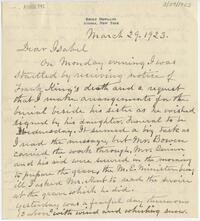 EMILY HOWLAND
SHERWOOD, NEW YORK
March 29, 1923.
Dear Isabel
On Monday evening I was
startled by receiving notice of
Frank King's death and a request
that I make arrangements for the
burial beside his sister as he wished
signed by his daughter, funeral to be
Wednesday. It seemed a big task as
I read the message, but Mrs Bowen
carried the work through, Mrs
and his aid were secured in the morning
to prepare the grave, the M.E. Minister being
ill I asked Mr. to make the service
at the grave which he did.
yesterday was a fearful day
with wind and whirling snow.